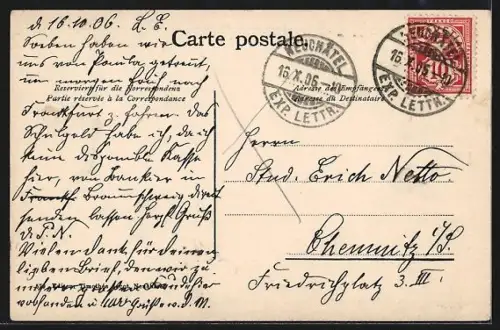 d 16.10.06. L. E.
Soeben haben wir
uns von getrennt,
um morgen früh nach
Frankfurt z. fahren. Das
Schulgeld habe ich, da ich
keine disponible Kasse
hier, von Bankier in
Braunschweig direkt
senden lassen Herzl. Gruß
d. P. N.
Vielen Dank für deinen
lieben Brief, den wir zu
u. Grüße v. D. M.
Carte postale.
Reserviert für die Korrespondenz
Partie réservée à la Correspondance
Adresse des Empfängers
Adresse du Destinataire
NEUCHÂTEL
16.X.06.-IV
EXP. LETTR.
NEUCHÂTEL
16.X.06.-IV
EXP. LETTR.
Herrn
Stud. Erich Netto.
Chemnitz i/S.
Friedrichplatz 3. III.